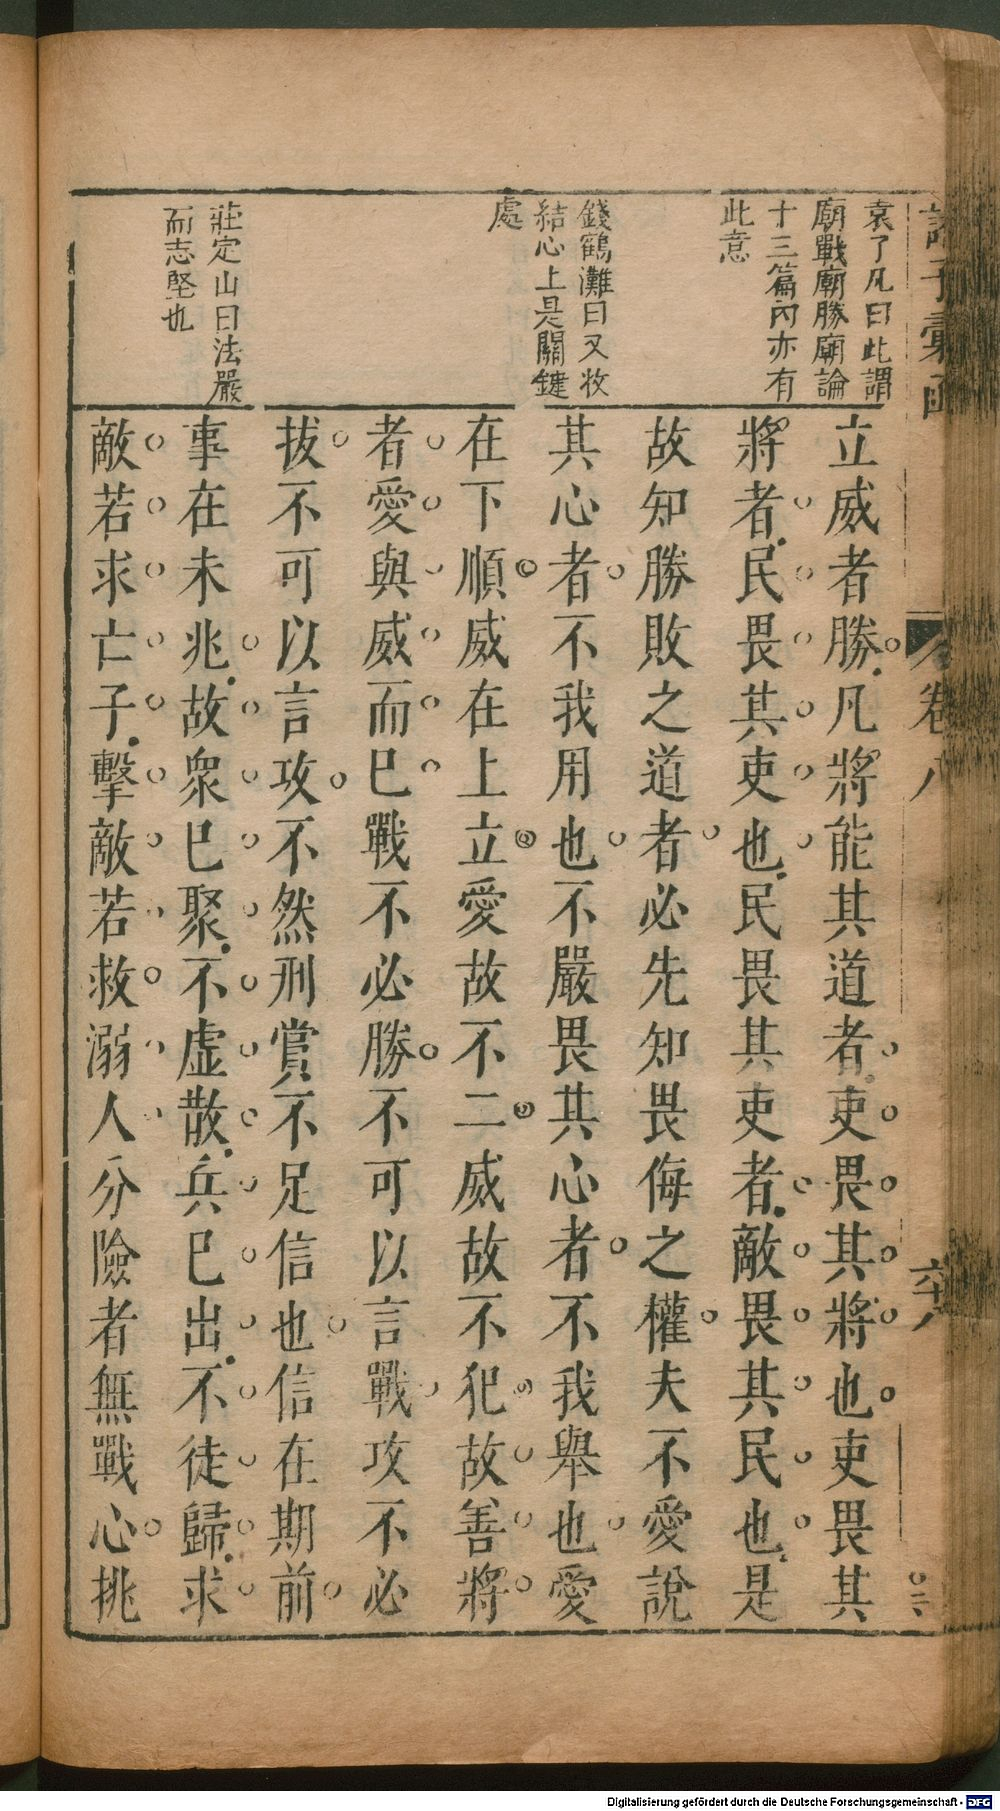 袁了凡曰此謂
廟戰廟勝廟論
十三篇內亦有
此意
錢鶴灘曰又收
結心上是關鍵
處
莊定山曰法嚴
而志堅也
立威者勝凡將能其道者吏畏其將也吏畏其
將者民畏其吏也民畏其吏者敵畏其民也是
故知勝敗之道者必先知畏侮之權夫不愛說
其心者不我用也不嚴畏其心者不我舉也愛
在下順威在上立愛故不二威故不犯故善將
者愛與威而已戰不必勝不可以言戰攻不必
拔不可以言攻不然刑賞不足信也信在期前
事在未兆故衆已聚不虛散兵已出不徒歸求
敵若求亡子擊敵若救溺人分險者無戰心挑
諸子彙函
卷八
六十八
Digitalisierung gefördert durch die Deutsche Forschungsgemeinschaft - DFG